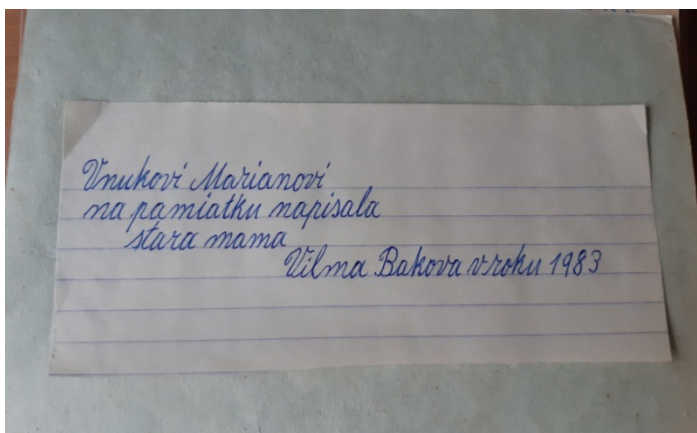 Vnukovi Marianovi
na pamiatku napisala
stara mama
Vilma Bakova v roku 1983